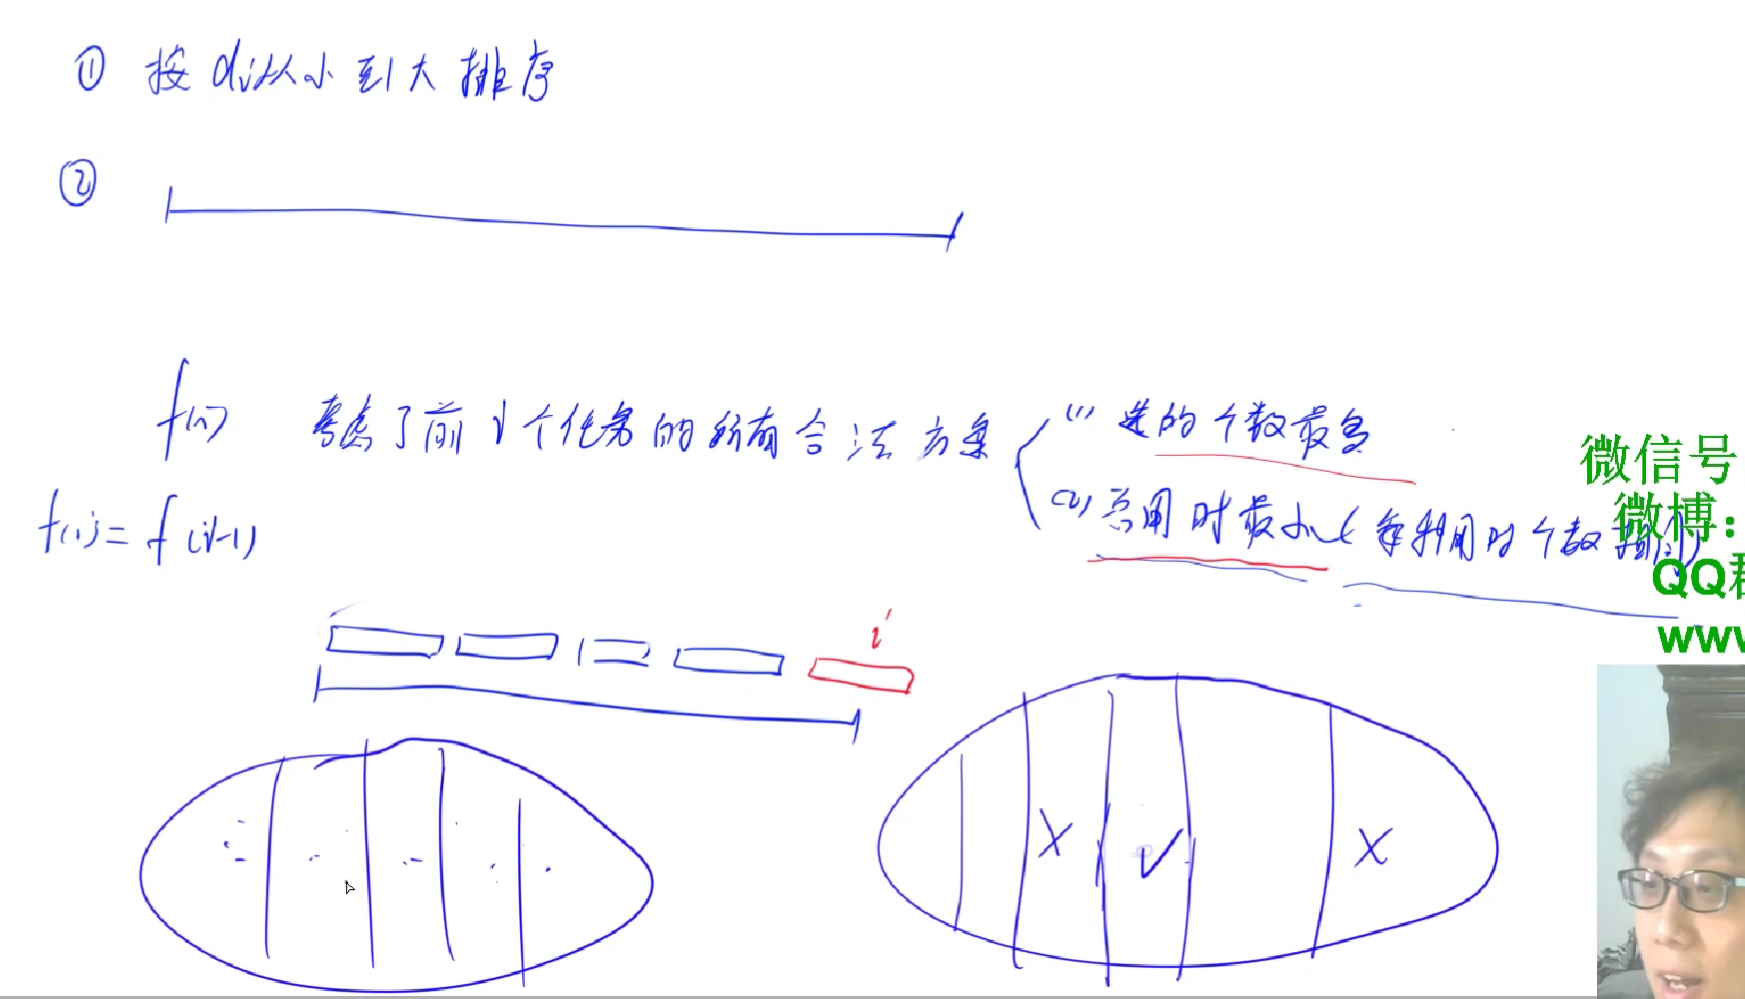 ① 按 di 从小到大排序
②
f(i) 考虑了前 i 个任务的所有合法方案 (1) 选的个数最多
(2) 总用时最小 (
f(i) = f(i-1)
i
微信号
微博：
QQ群
www
× ✓ ×